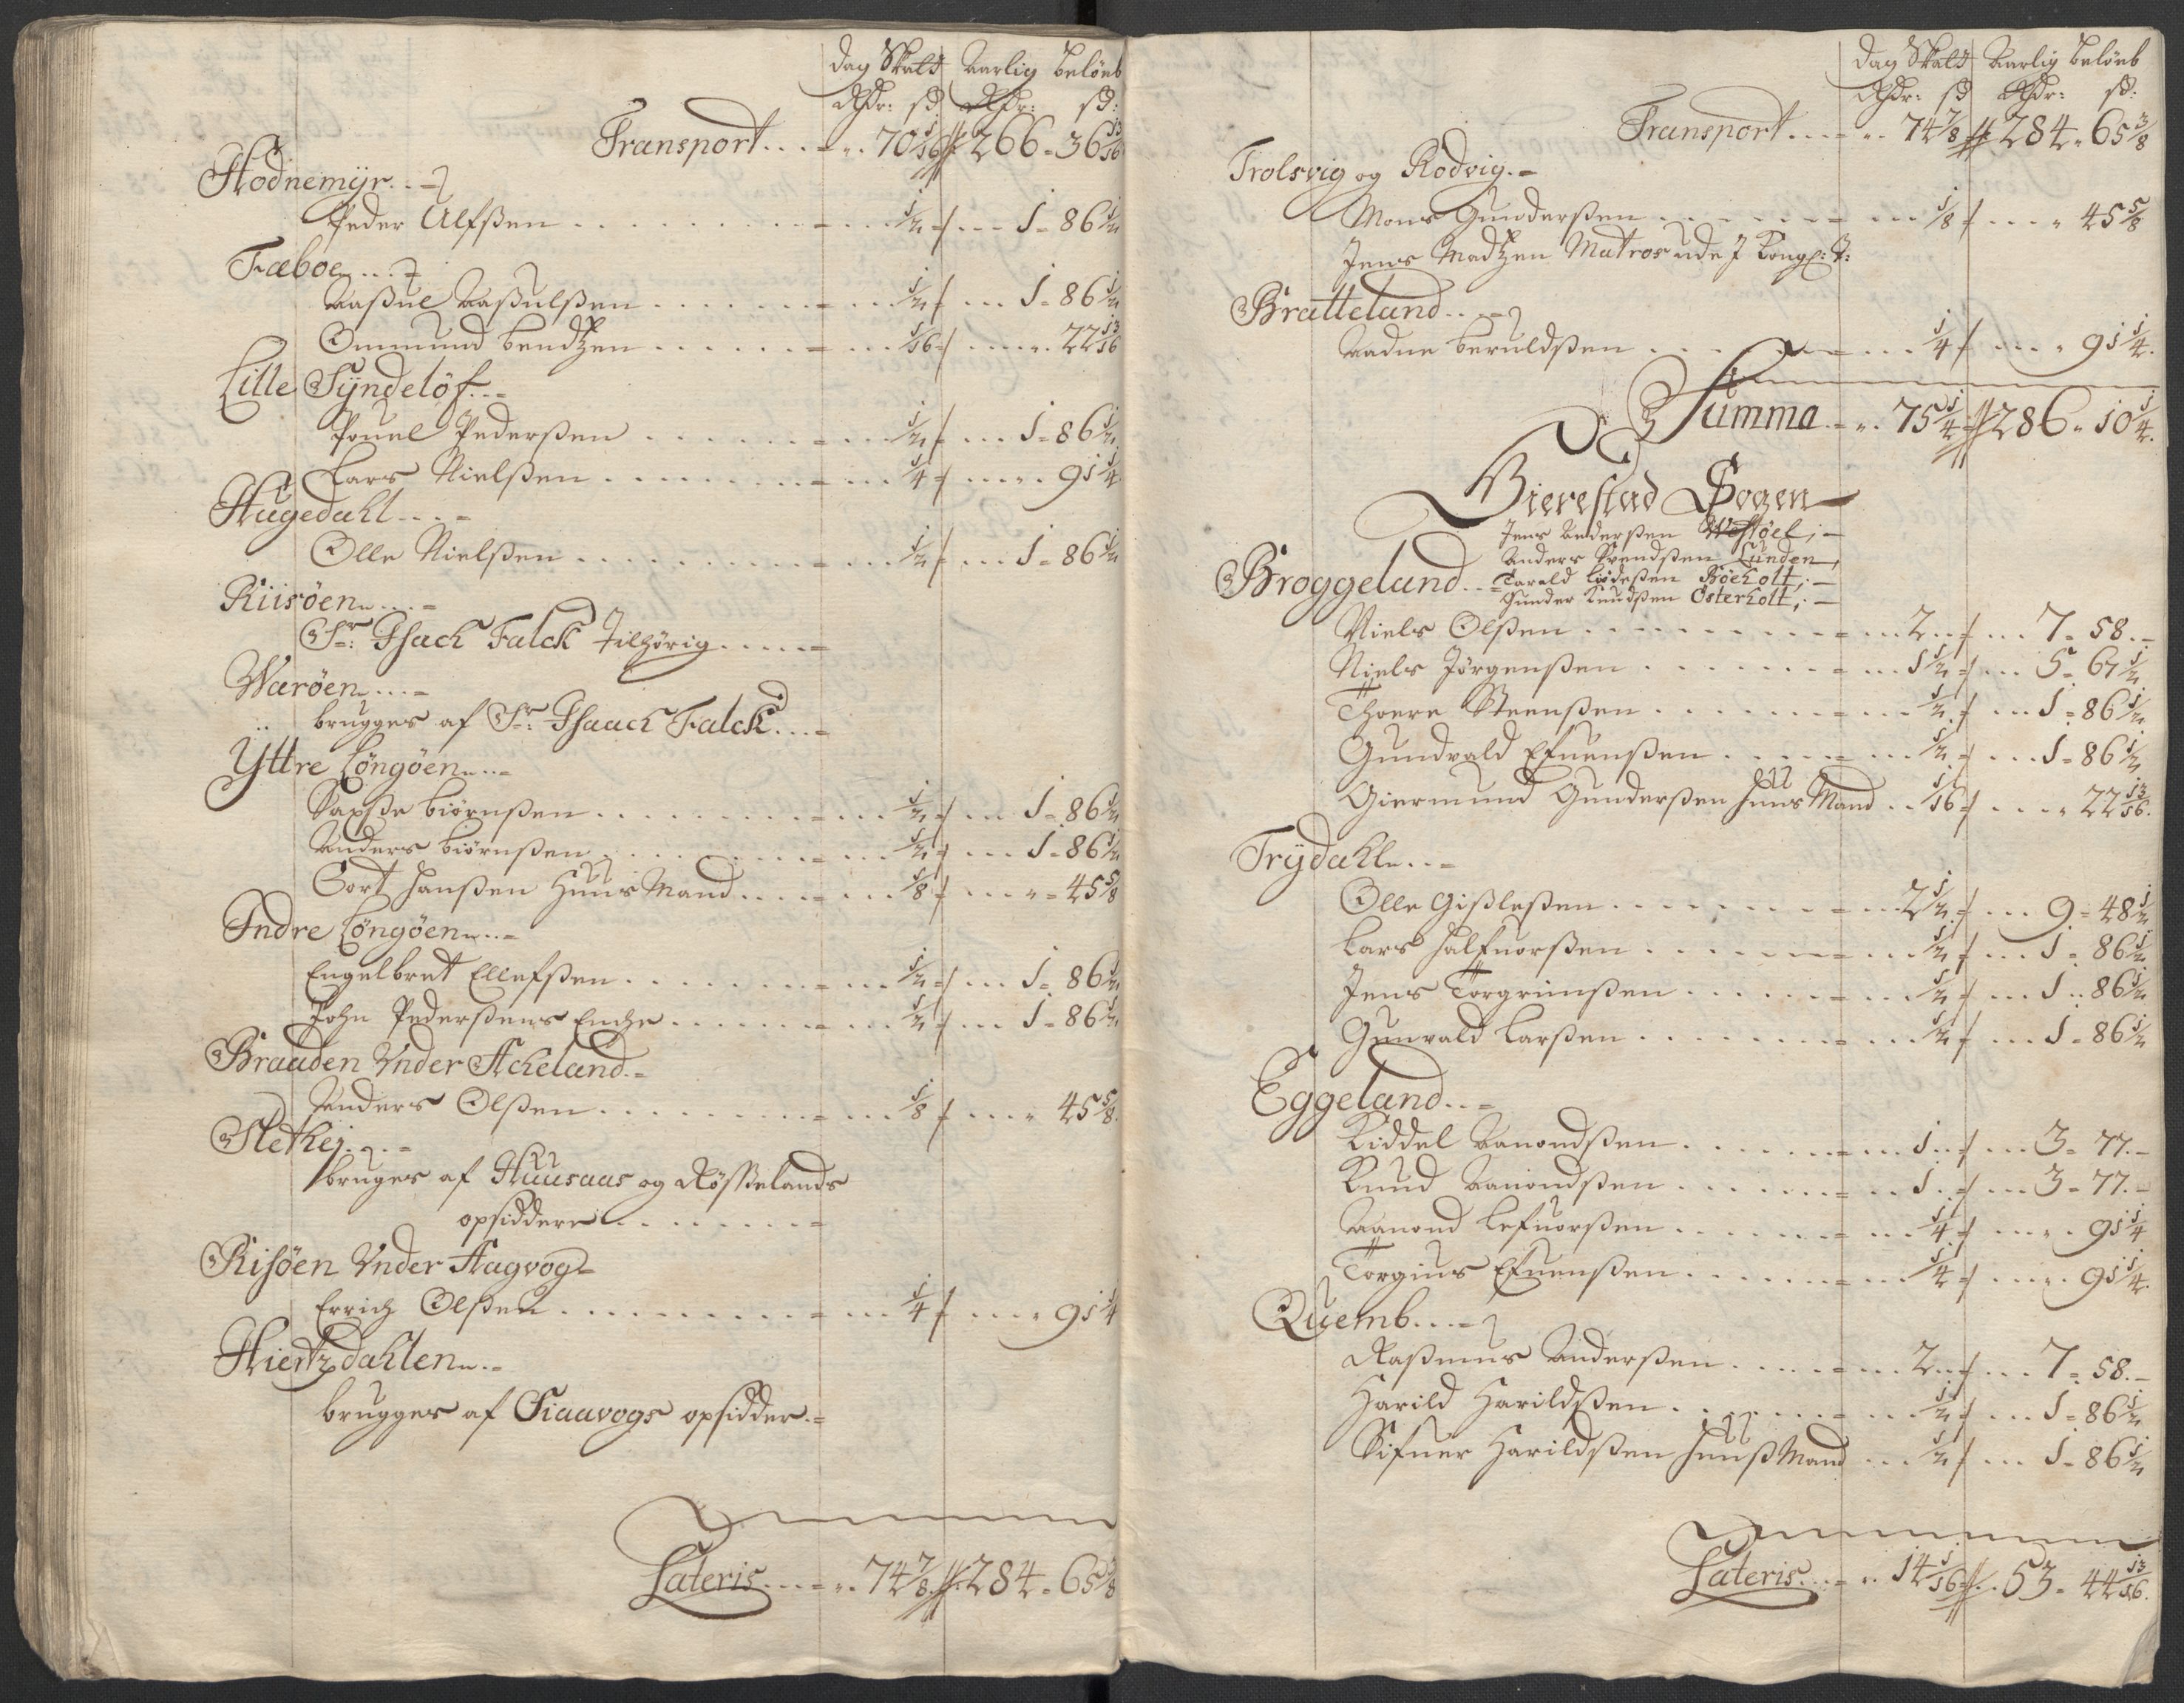 Dag Skatt Aarlig Beløeb
Rdr: sk Rdr: sk:
Transport . . . 70 1/16 266 - 36 13/16
Hodnemyr . .
Peder Ulfsen . . . 1/2 . . . 1 - 86 1/2
Fæboe . . .
Aasuel Aasulsen . . . 1/2 . . . 1 - 86 1/2
Ommund Bendtzen . . . 1/16 . . . 22 13/16
Lille Syndeløf . .
Pouel Pedersen . . . 1/2 . . . 1 - 86 1/2
Lars Nielsen . . . 1/4 . . . 91 1/4
Hugedahl . . .
Olle Nielsen . . . 1/2 . . . 1 - 86 1/2
Riisøen . . .
Sr: Isach Falck Tilhørig . . .
Warøen . . .
brugges af Sr: Isaach Falck . . .
Yttre Longøen . . .
Saxse Biørnsen . . . 1/2 . . . 1 - 86 1/2
Anders Biørnsen . . . 1/2 . . . 1 - 86 1/2
Cort Hansen Huus Mand . . . 1/8 . . . 45 5/8
Indre Longøen . . .
Engelbret Ellefsen . . . 1/2 . . . 1 - 86 1/2
John Pedersens Enche . . . 1/2 . . . 1 - 86 1/2
Braaden Under Acheland . .
Anders Olsen . . . 1/8 . . . 45 5/8
Slethei . . .
bruges af Huusaas og Røsselands
opsiddere . . .
Risøen Under Hagvog
Errich Olsen . . . 1/4 . . . 91 1/4
Hiertzdahlen . .
brugges af Fiaavogs opsidder . .
Lateris . . . 74 7/8 284 - 65 3/8
Dag Skatt Aarlig Beløeb
Rdr: sk Rdr: sk:
Transport . . . 74 7/8 284 - 65 3/8
Trolsvig og Rodvig . .
Mons Gundersen . . . 1/8 . . . 45 5/8
Jens Madtzen Matros ude J Kongl: T:
Bratteland . . .
Aadne Beruldsen . . . 1/4 . . . 91 1/4
Summa . . 75 1/4 286 - 10 1/4
Bierestad Sogen
Jens Andersen Westøel; -
Anders Svendsen Lunden,
Broggeland . . Tarald Lodesen Bøeholt; -
Gunder Knudsen Osterholt; -
Niels Olsen . . . 2 . . . 7 - 58
Niels Jørgensen . . . 1 1/2 . . . 5 - 67 1/2
Thore Steensen . . . 1/2 . . . 1 - 86 1/2
Gundvald Efuensen . . . 1/2 . . . 1 - 86 1/2
Giermund Gundersen Huus Mand . . 1/16 . . . 22 13/16
Trydahl . . .
Olle Gislesen . . . 2 1/2 . . . 9 - 48 1/2
Lars Halfuorsen . . . 1/2 . . . 1 - 86 1/2
Jens Torgrimsen . . . 1/2 . . . 1 - 86 1/2
Gunvald Larsen . . . 1/2 . . . 1 - 86 1/2
Eggeland . . .
Kiddel Aanondsen . . . 1 . . . 3 - 77
Knud Aanondsen . . . 1 . . . 3 - 77
Aanond Lefuorsen . . . 1/4 . . . 91 1/4
Torgius Efuensen . . . 1/4 . . . 91 1/4
Quemb . . .
Rasmus Andersen . . . 2 . . . 7 - 58
Harild Harildsen . . . 1/2 . . . 1 - 86 1/2
Sifuer Harildsen Huus Mand . . . 1/2 . . . 1 - 86 1/2
Lateris . . . 14 1/16 . . 53 - 44 13/16